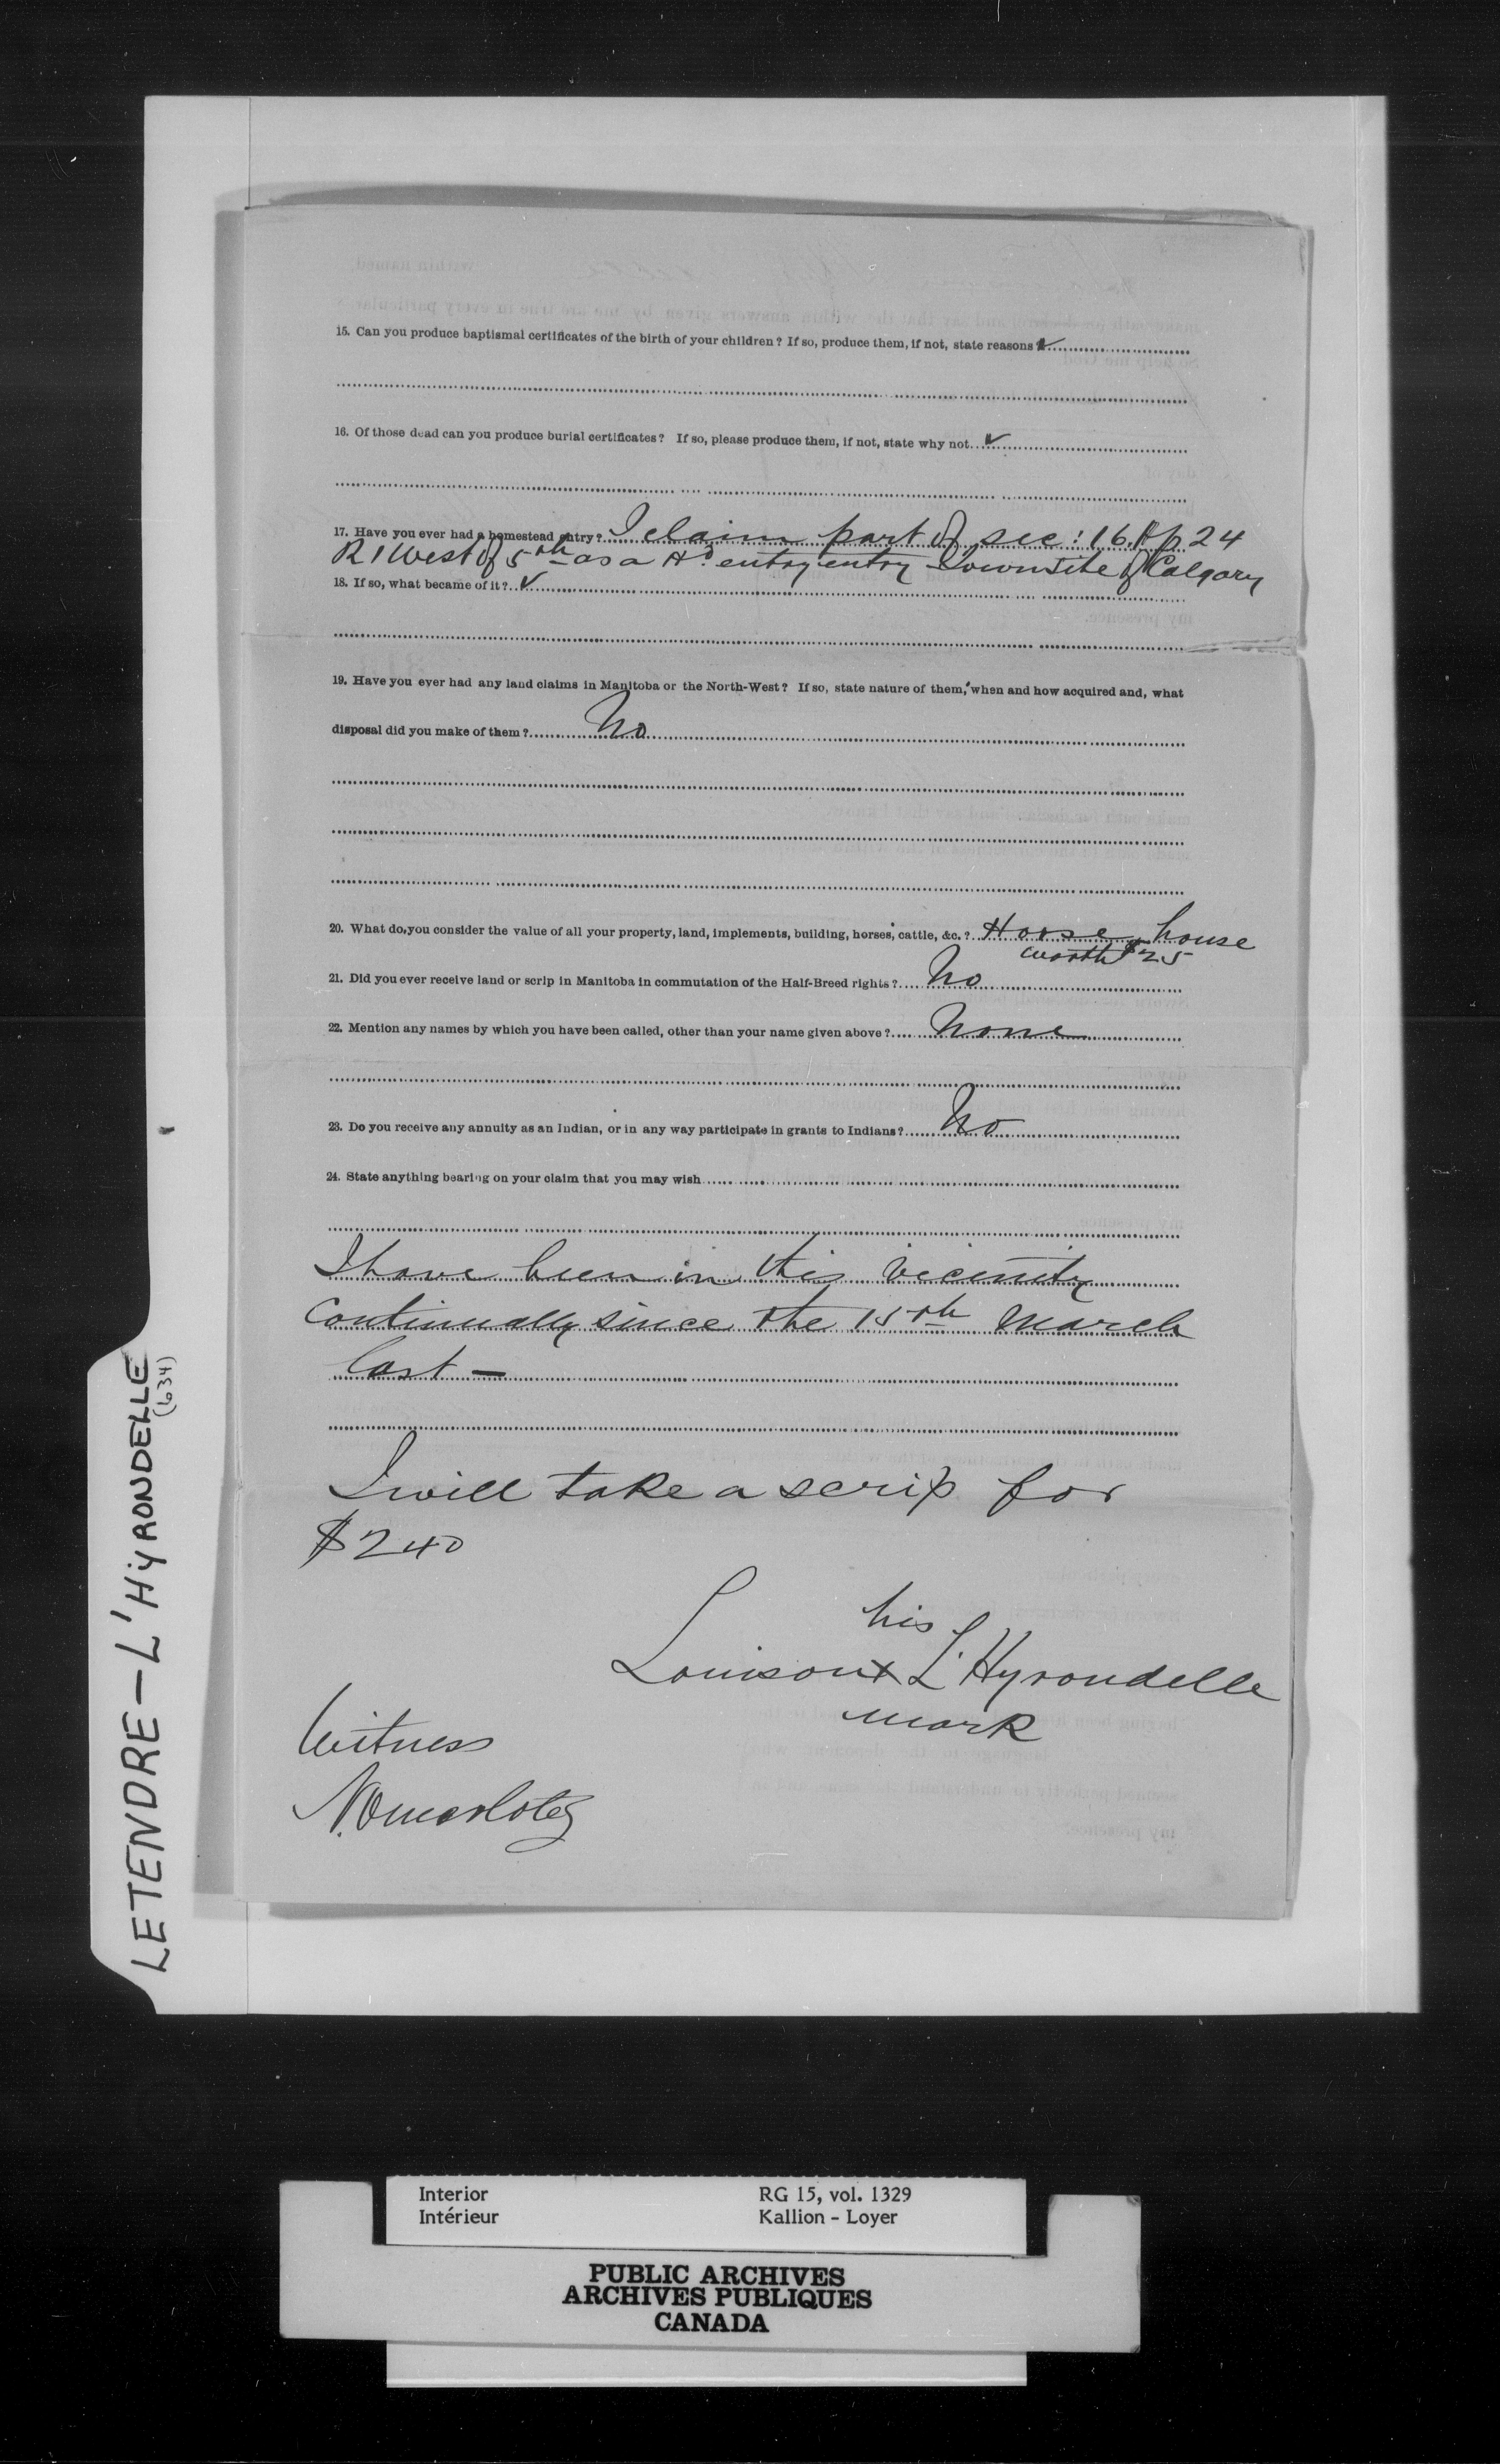 15. Can you produce baptismal certificates of the birth of your children? If so, produce them, if not, state reasons ✓
16. Of those dead can you produce burial certificates? If so, please produce them, if not, state why not ✓
17. Have you ever had a homestead entry? I claim part of sec: 16. Tp 24
R 1 West of 5th as a Hd. entry entry Townsite of Calgary
18. If so, what became of it? ✓
19. Have you ever had any land claims in Manitoba or the North-West? If so, state nature of them, when and how acquired and, what
disposal did you make of them? No
20. What do you consider the value of all your property, land, implements, building, horses, cattle, &c.? Horse, house
worth $25
21. Did you ever receive land or scrip in Manitoba in commutation of the Half-Breed rights? No
22. Mention any names by which you have been called, other than your name given above? None
23. Do you receive any annuity as an Indian, or in any way participate in grants to Indians? No
24. State anything bearing on your claim that you may wish
I have been in this vicinity
continually since the 15th March
last —
I will take a scrip for
$240
his
Louison x L'Hyrondelle
mark
Witness
LETENDRE – L'HYRONDELLE
(634)
Interior RG 15, vol. 1329
Intérieur Kallion - Loyer
PUBLIC ARCHIVES
ARCHIVES PUBLIQUES
CANADA